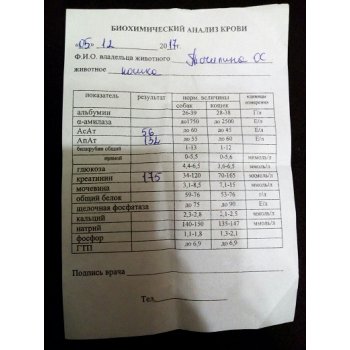 БИОХИМИЧЕСКИЙ АНАЛИЗ КРОВИ
«05» 12 2017г.
Ф.И.О. владельца животного
животное кошка
показатель результат норм. величины единицы измерения
собак кошек
альбумин 26-39 28-38 Г/л
α-амилаза до1750 до 2500 Е/л
АсАт 56 до 60 до 45 Е/л
АлАт 132 до 55 до 60 Е/л
билирубин общий 1-13 1-12
прямой 0-5,5 0-5,6 мкмоль/л
глюкоза 4,4-6,5 3,6-6,5 ммоль/л
креатинин 175 34-120 70-165 мкмоль/л
мочевина 3,1-8,5 7,1-15 ммоль/л
общий белок 59-76 53-76 г/л
щелочная фосфатаза до 75 до 90 Е/л
кальций 2,3-2,8 2,1-2,5 ммоль/л
натрий 140-150 135-147 ммоль/л
фосфор 1,1-1,8 1,3-2,1
ГТП до 6,9 до 6,9
Подпись врача
Тел.